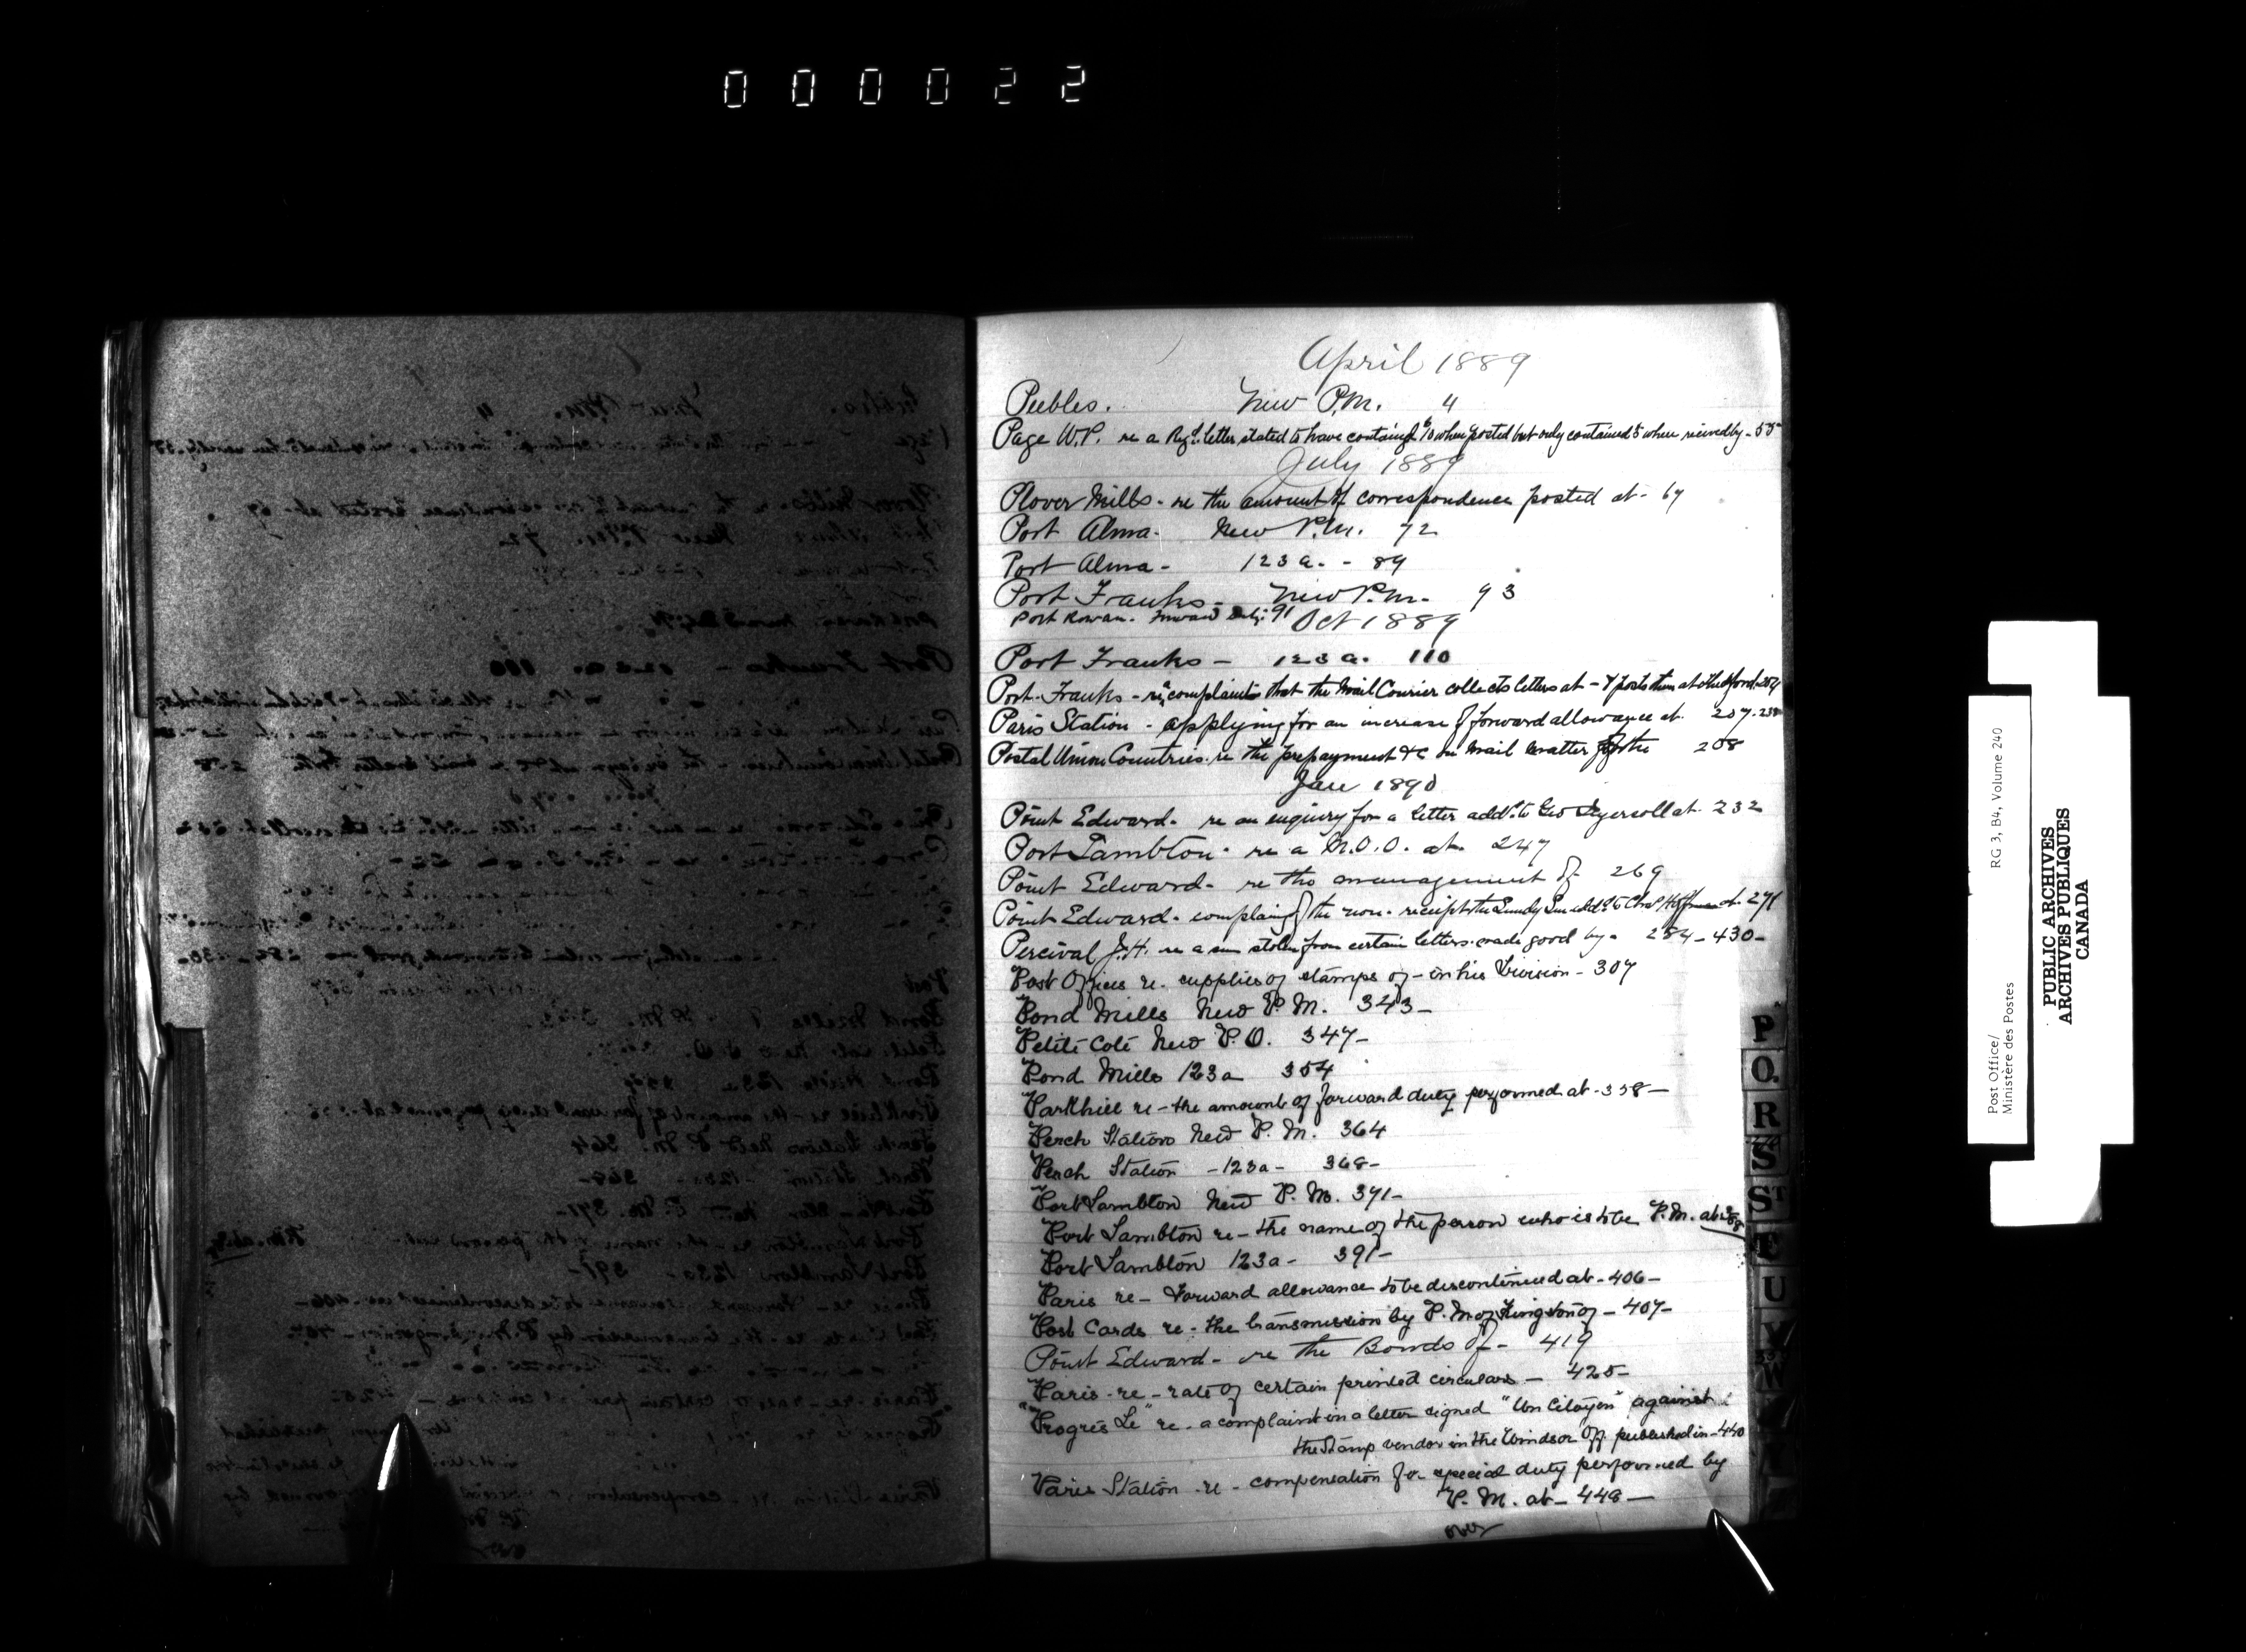 000022
April 1889
Peebles. New P.M. 4
Page W.P. re a Regd. letter stated to have contained $10 when posted but only contained 5 when received by - 55
July 1889
Plover Mills - re the amount of correspondence posted at - 67
Port Alma - New P.M. 72
Port Alma - 123a. - 89
Port Franks - New P.M. - 93
Port Rowan. Forward Duty: 91
Oct 1889
Port Franks - 123a. 110
Port Franks - re complaints that the Mail Courier collects letters at - & posts them at Thedford - 204
Paris Station - applying for an increase of forward allowance at. 207 - 238
Postal Union Countries. re the prepayment &c on mail matter for the 208
Jan 1890
Point Edward - re an enquiry for a letter addd. to Geo Ingersoll at - 232
Port Lambton - re a M.O.O. at. 247
Point Edward - re the management of 269
Point Edward - complaing of the non-receipt the addd. to at. 271
Percival J.H. re a sum stolen from certain letters made good by - 284 - 430 -
Post Offices re. supplies of stamps of - in his Division - 307
Pond Mills New P.M. 343 -
Petite Coté New P.O. 347 -
Pond Mills 123a 354
Parkhill re - the amount of forward duty performed at - 358 -
Perch Station New P.M. 364
Perch Station - 123a - 368 -
Port Lambton New P.M. 371 -
Port Lambton re - the name of the person who is to be P.M. at
Port Lambton 123a - 391 -
Paris re - Forward allowance to be discontinued at - 406 -
Post Cards re - the transmission by P.M. of Kingston of - 407 -
Point Edward - re the Bonds of - 419
Paris - re - rate of certain printed circulars - 425 -
"Progrès Le" re - a complaint in a letter signed "Un Citoyen" against
the Stamp vendor in the Windsor Off. published in - 440
Paris Station - re - compensation for special duty performed by
P.M. at - 448 -
over
P
Q.
R
S
ST
T
U
V
W
Post Office/
Ministère des Postes
RG 3, B4, Volume 240
PUBLIC ARCHIVES
ARCHIVES PUBLIQUES
CANADA